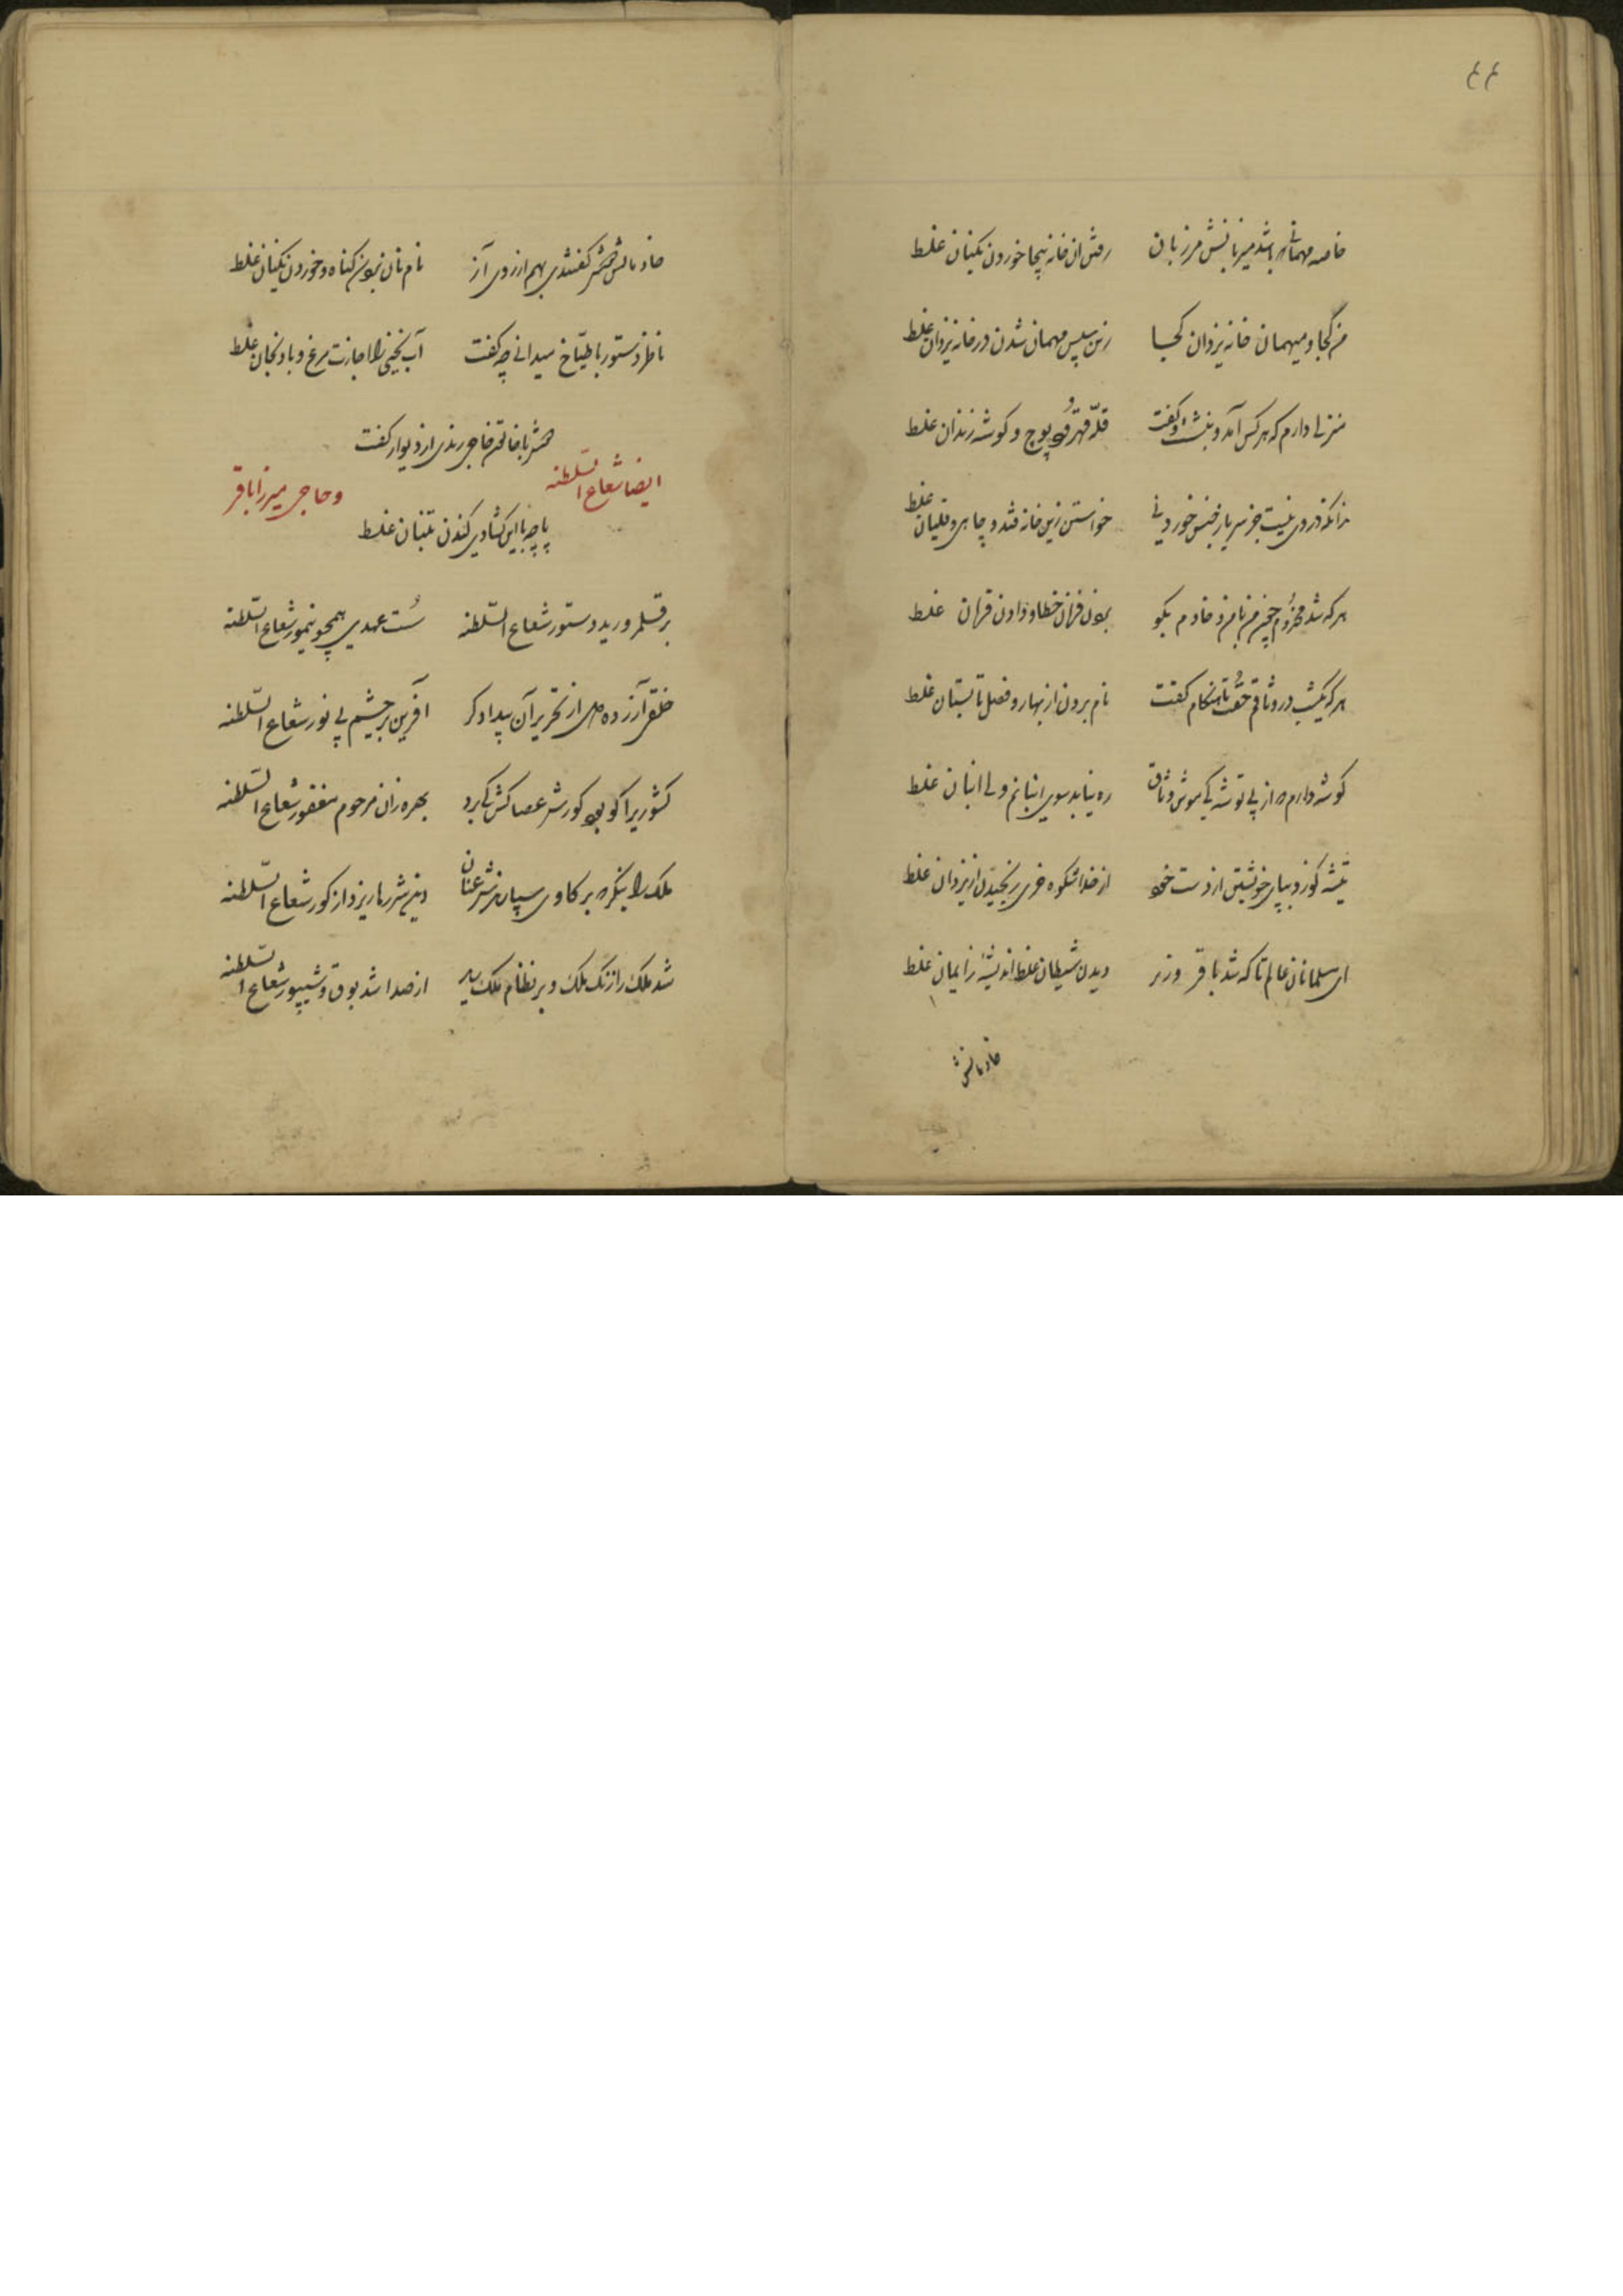 ۴۴
خاصه مهمانی که باشد میزبانش مرزبان رفتن آن خانه بیجا خوردن یکنان غلط
من کجا و میهمان خانه یزدان کجا زین سپس مهمان شدن در خانه یزدان غلط
منزلی دارم که هر کس آمد و بنشست و گفت قلّه قهقهه پوچ و گوشه زندان غلط
زانکه در وی نیست جز سر بار جنس خوردنی خواستن زین خانه قند و چاهی و قلیان غلط
هر که شد من با من و خادم بگو بودن قران خطا و دادن قران غلط
هر که یکشب در وثاقم خفت تا هنگام گفت نام بردن از بهار و فصل تابستان غلط
گوشه دارم که از بی توشه کی موش وثاق ره نیابد سوی انبانم ولی انبان غلط
تیشه گو زد بپای خویشتن از دست خود از خدا شکوه خری رنجیدن از یزدان غلط
ای مسلمانان عالم تا که شد باقر وزیر دیدن شیطان غلط اندیشهٔ ز ایمان غلط
خادمانش
خادمانش گفتندی بهم از روی آز نام نان بودن گناه و خوردن یکنان غلط
ناظر دستور با طبّاخ میدانی چه گفت آب یخنی را اجازت مرغ و بادنجان غلط
با خانم خاجی رندی از دیوار گفت
ایضا شعاع السّلطنه و حاجی میرزا باقر
پاچه با این گشادی کندن تنبان غلط
بر قلمرو رید دستور شعاع السّلطنه سُست عهدی همچو تیمور شعاع السّلطنه
خلق آزرده دل از تحریر آن بیدادگر آفرین بر چشم بی نور شعاع السّلطنه
کشوریرا کو بود کورش عصاکش کی برد بهره زان مرحوم مغفور شعاع السّلطنه
ملک را بنگر که بر گاوی سپارندش عنان وینهمه شرها ریزد از کور شعاع السّلطنه
شد ملک را ننگ ملک و بر نظام ملک رید از صدا شد بوق و شیپور شعاع السّلطنه